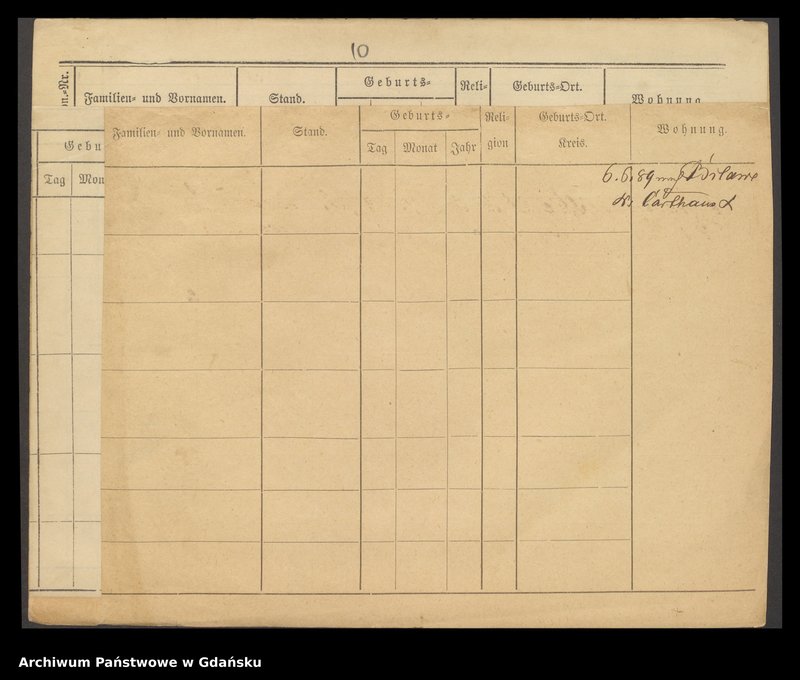 10
on.-Nr.
Familien- und Vornamen. Stand. Geburts- Reli- Geburts-Ort. Wohnung
Gebu
Tag Mon
Familien- und Vornamen. Stand. Geburts- Reli- Geburts-Ort. Wohnung.
Tag Monat Jahr gion Kreis.
6.6.89
Carthaus
Archiwum Państwowe w Gdańsku